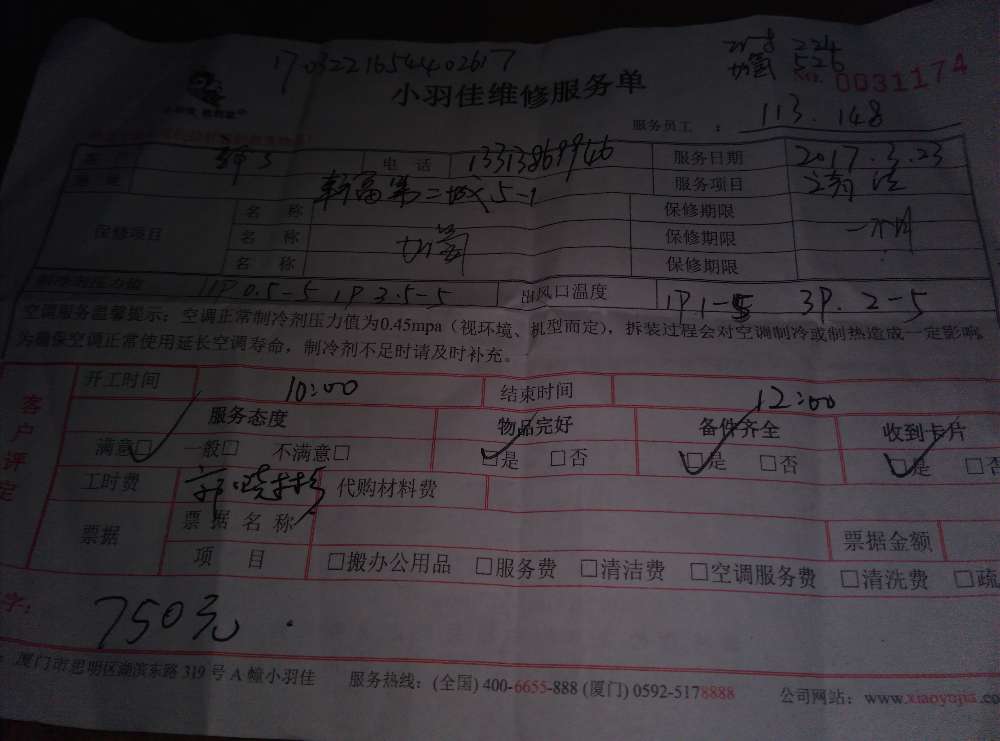 1703221654402617
224
加氟 526
小羽佳维修服务单
No. 0031174
服务员工 : 113.148
电 话 13313869946 服务日期 2017.3.23
服务项目 清洁
名 称 保修期限
保修项目 名 称 加氟 保修期限 一个月
名 称 保修期限
制冷剂压力值 1P 0.5-5 1P 3.5-5 出风口温度 1P.1-5 3P.2-5
空调服务温馨提示：空调正常制冷剂压力值为0.45mpa（视环境、机型而定），拆装过程会对空调制冷或制热造成一定影响，
为确保空调正常使用延长空调寿命，制冷剂不足时请及时补充。
客户评定
开工时间 10:00 结束时间 12:00
服务态度 物品完好 备件齐全 收到卡片
满意☑ 一般□ 不满意□ ☑是 □否 ☑是 □否 ☑是 □否
工时费 代购材料费
票据 票据名称 票据金额
项 目 □搬办公用品 □服务费 □清洁费 □空调服务费 □清洗费 □疏
字： 750元
厦门市思明区湖滨东路 319 号 A 幢小羽佳 服务热线：(全国) 400-6655-888 (厦门) 0592-5178888 公司网站：www.xiaoyujia.co